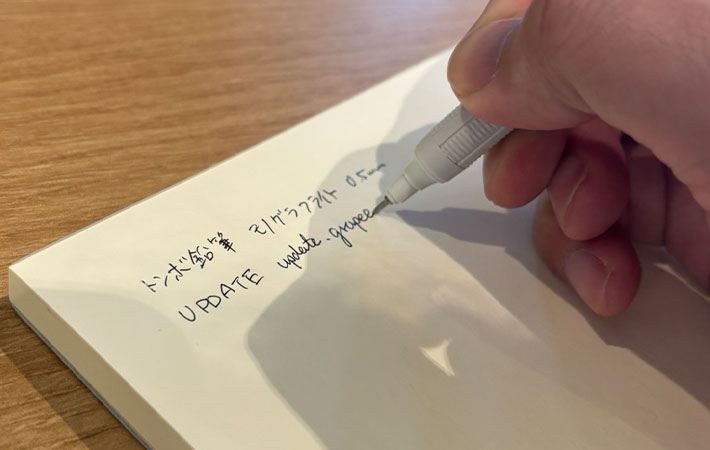 トンボ鉛筆 モノグラフライト 0.5mm
UPDATE update.grapee